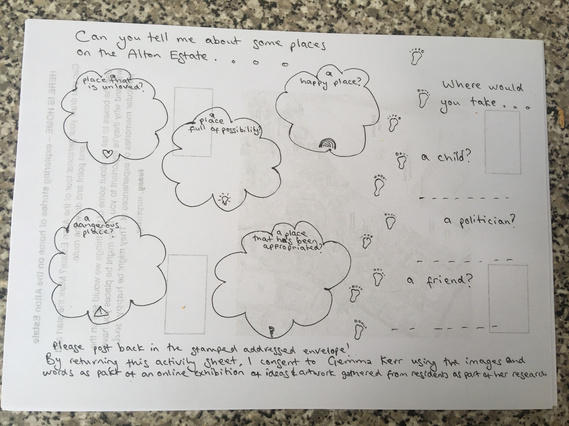 Can you tell me about some places
on the Alton Estate . . . .
a
place that
is unloved?
a
place
full of possibility?
a
happy place?
a
dangerous
place?
a place
that has been
appropriated?
Where would
you take . . .
a child?
a politician?
a friend?
Please post back in the stamped addressed envelope!
By returning this activity sheet, I consent to Gemma Kerr using the images and
words as part of an online exhibition of ideas & artwork gathered from residents as part of her research